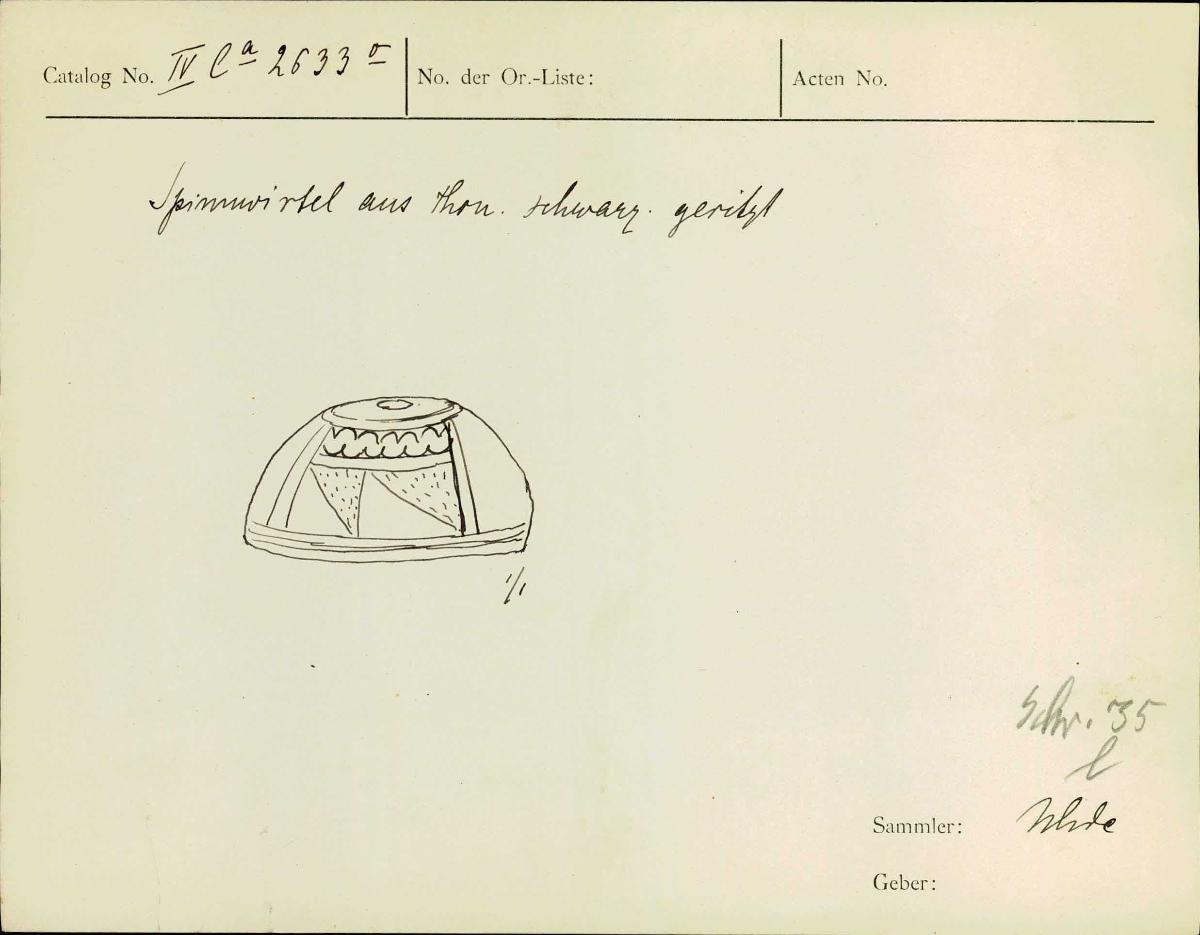 Catalog No. IV Ca 2633 o
No. der Or.-Liste:
Acten No.
Spinnwirtel aus Thon. schwarz. geritzt
1/1
Schr. 35
l
Sammler: Uhde
Geber: